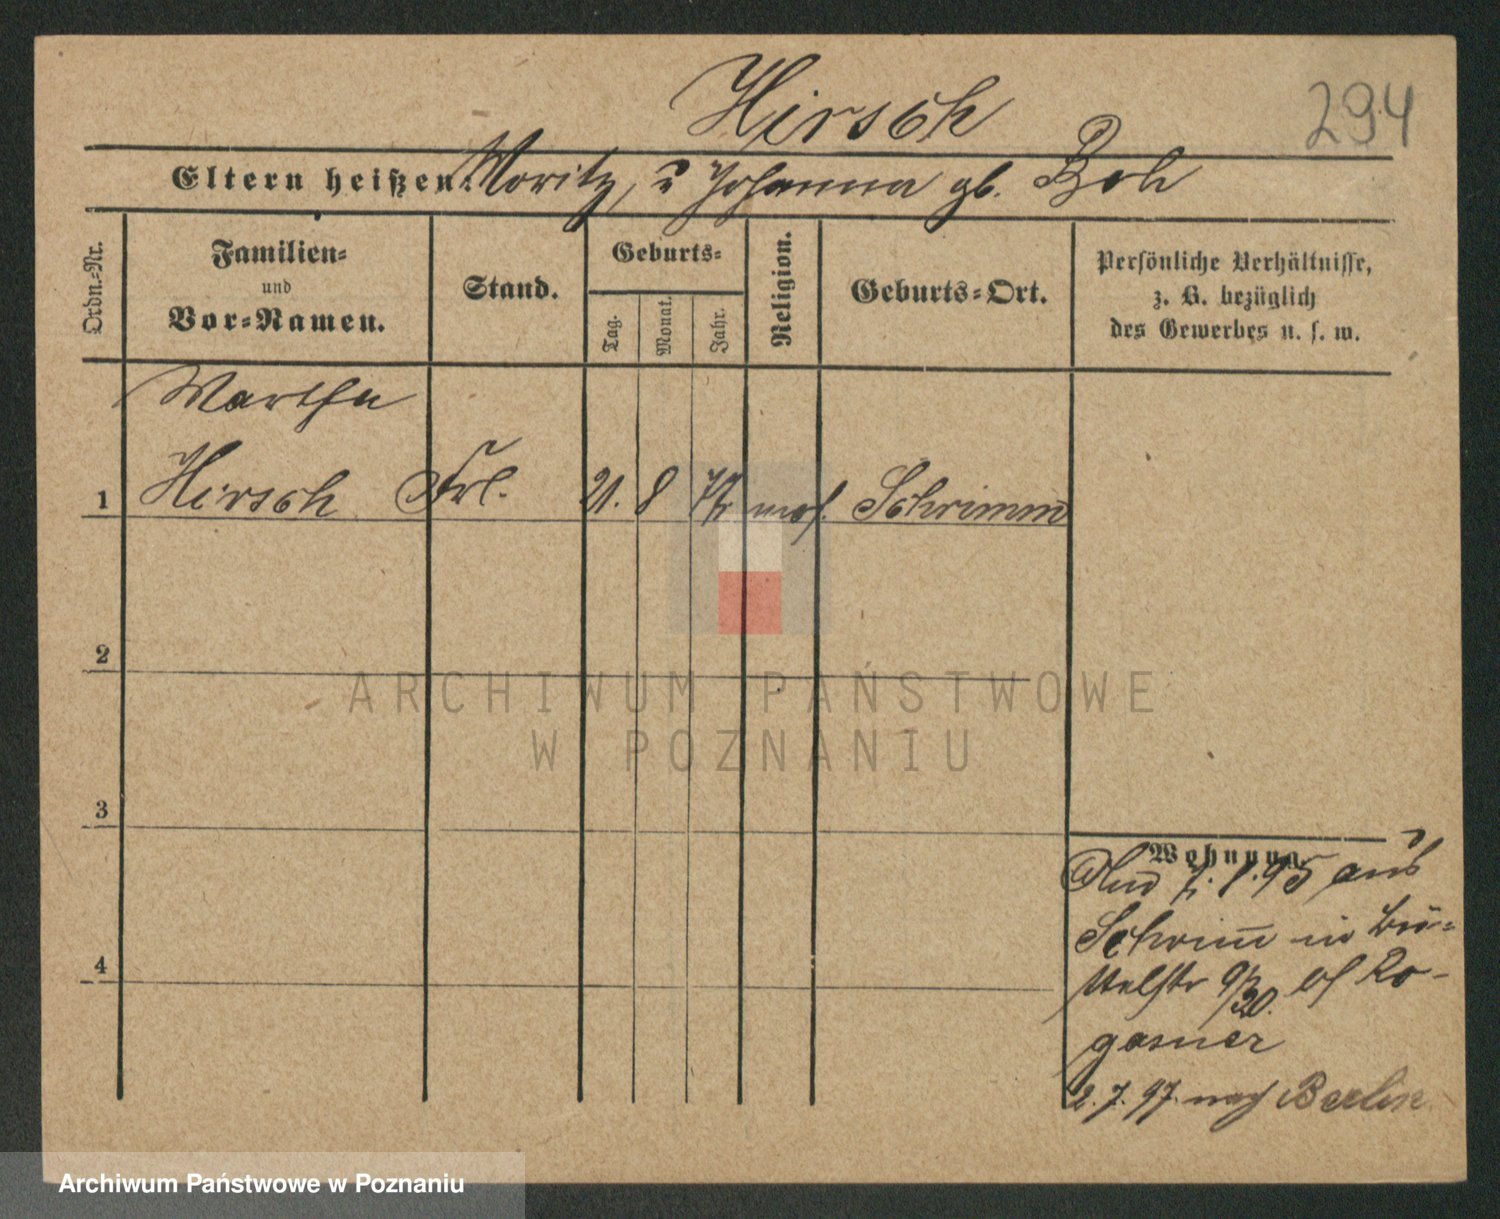 Hirsch
294
Eltern heißen: Moritz, u Johanna gb.
Ordn.-Nr.
Familien-
und
Vor-Namen.
Stand.
Geburts-
Tag.
Monat.
Jahr.
Religion.
Geburts-Ort.
Persönliche Verhältnisse,
z. B. bezüglich
des Gewerbes u. s. w.
Martha
1 Hirsch Frl. 21. 8 mos. Schrimm
2
3
4
Wohnung.
95 aus
Schrimm in Büt-
telstr 9/20. bf Ro-
gasner
2. 7. 97. nach Berlin
ARCHIWUM PAŃSTWOWE
W POZNANIU
Archiwum Państwowe w Poznaniu